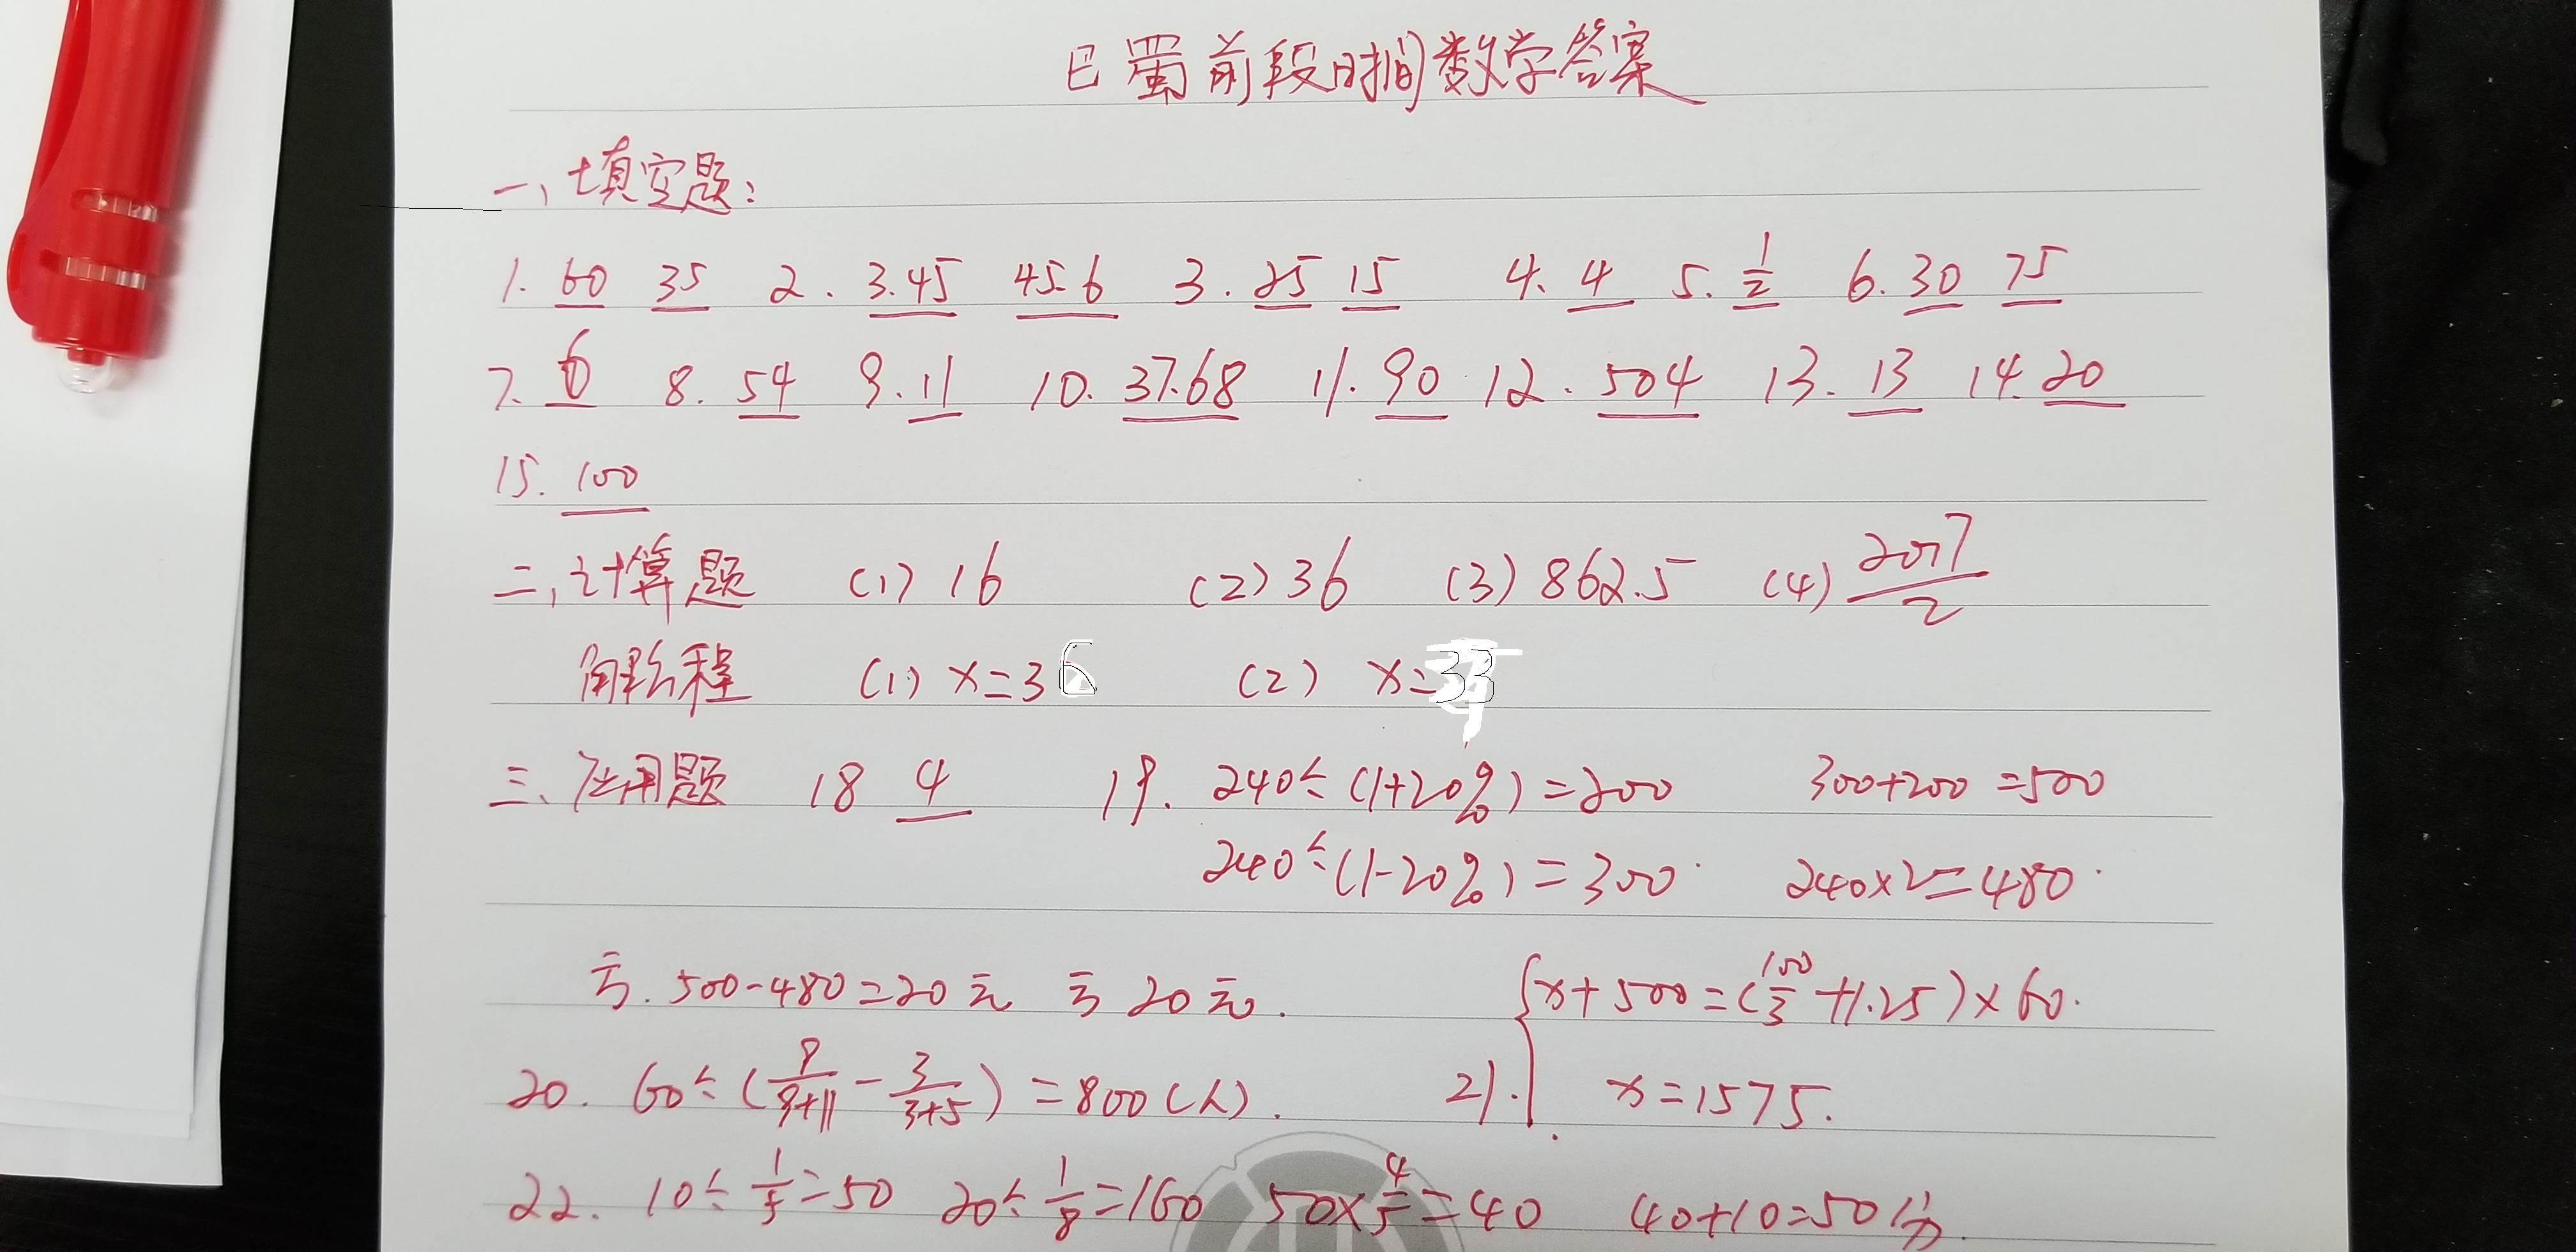 巴蜀前段时间数学答案
一、填空题:
1. 60 35 2. 3.45 45.6 3. 25 15 4. 4 5. 1/2 6. 30 75
7. 6 8. 54 9. 11 10. 37.68 11. 90 12. 504 13. 13 14. 20
15. 100
二、计算题 (1) 16 (2) 36 (3) 862.5 (4) 2017/2
解方程 (1) x=36 (2) x=33
三、应用题 18 4 19. 240÷(1+20%)=200 300+200=500
240÷(1-20%)=300 240×2=480
亏. 500-480=20元 亏20元.
20. 60÷(9/(9+11) - 3/(3+5))=800(人).
21. { x+500=(100/3+1.25)×60.
x=1575.
22. 10÷1/5=50 20÷1/8=160 50×4/5=40 40+10=50分.